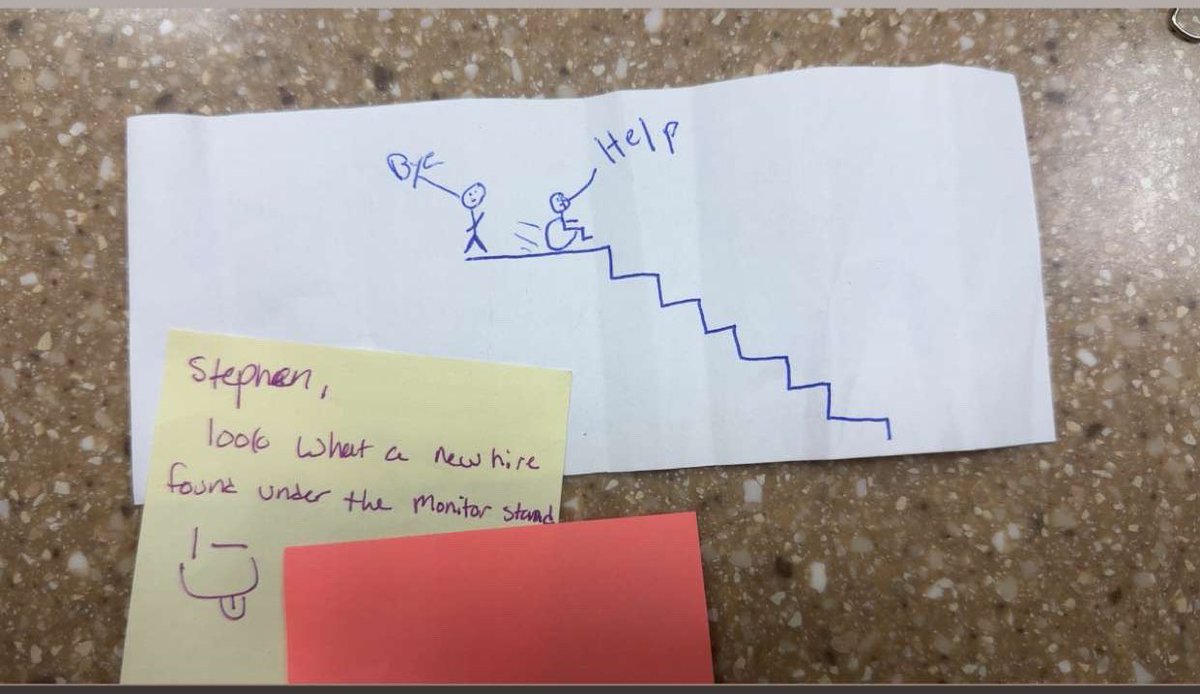 Bye
Help
Stephen,
look what a new hire
found under the monitor stand